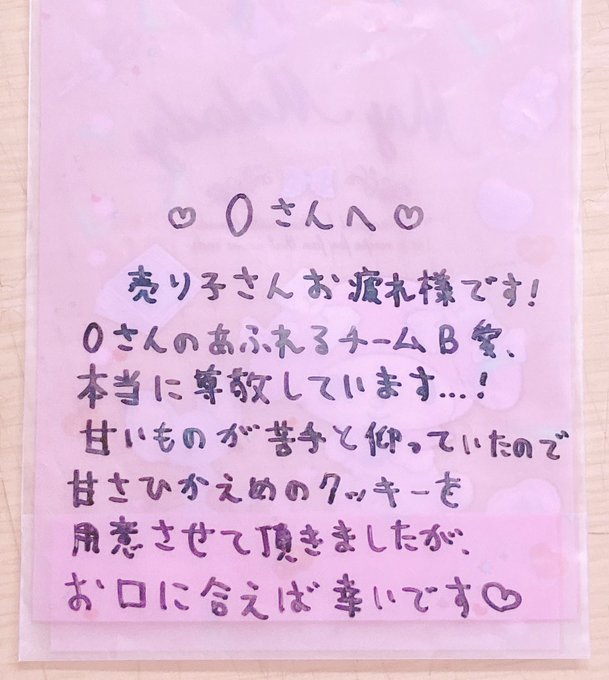 My Melody
♡ Oさんへ ♡
売り子さんお疲れ様です!
OさんのあふれるチームB愛、
本当に尊敬しています…!
甘いものが苦手と仰っていたので
甘さひかえめのクッキーを
用意させて頂きましたが、
お口に合えば幸いです♡